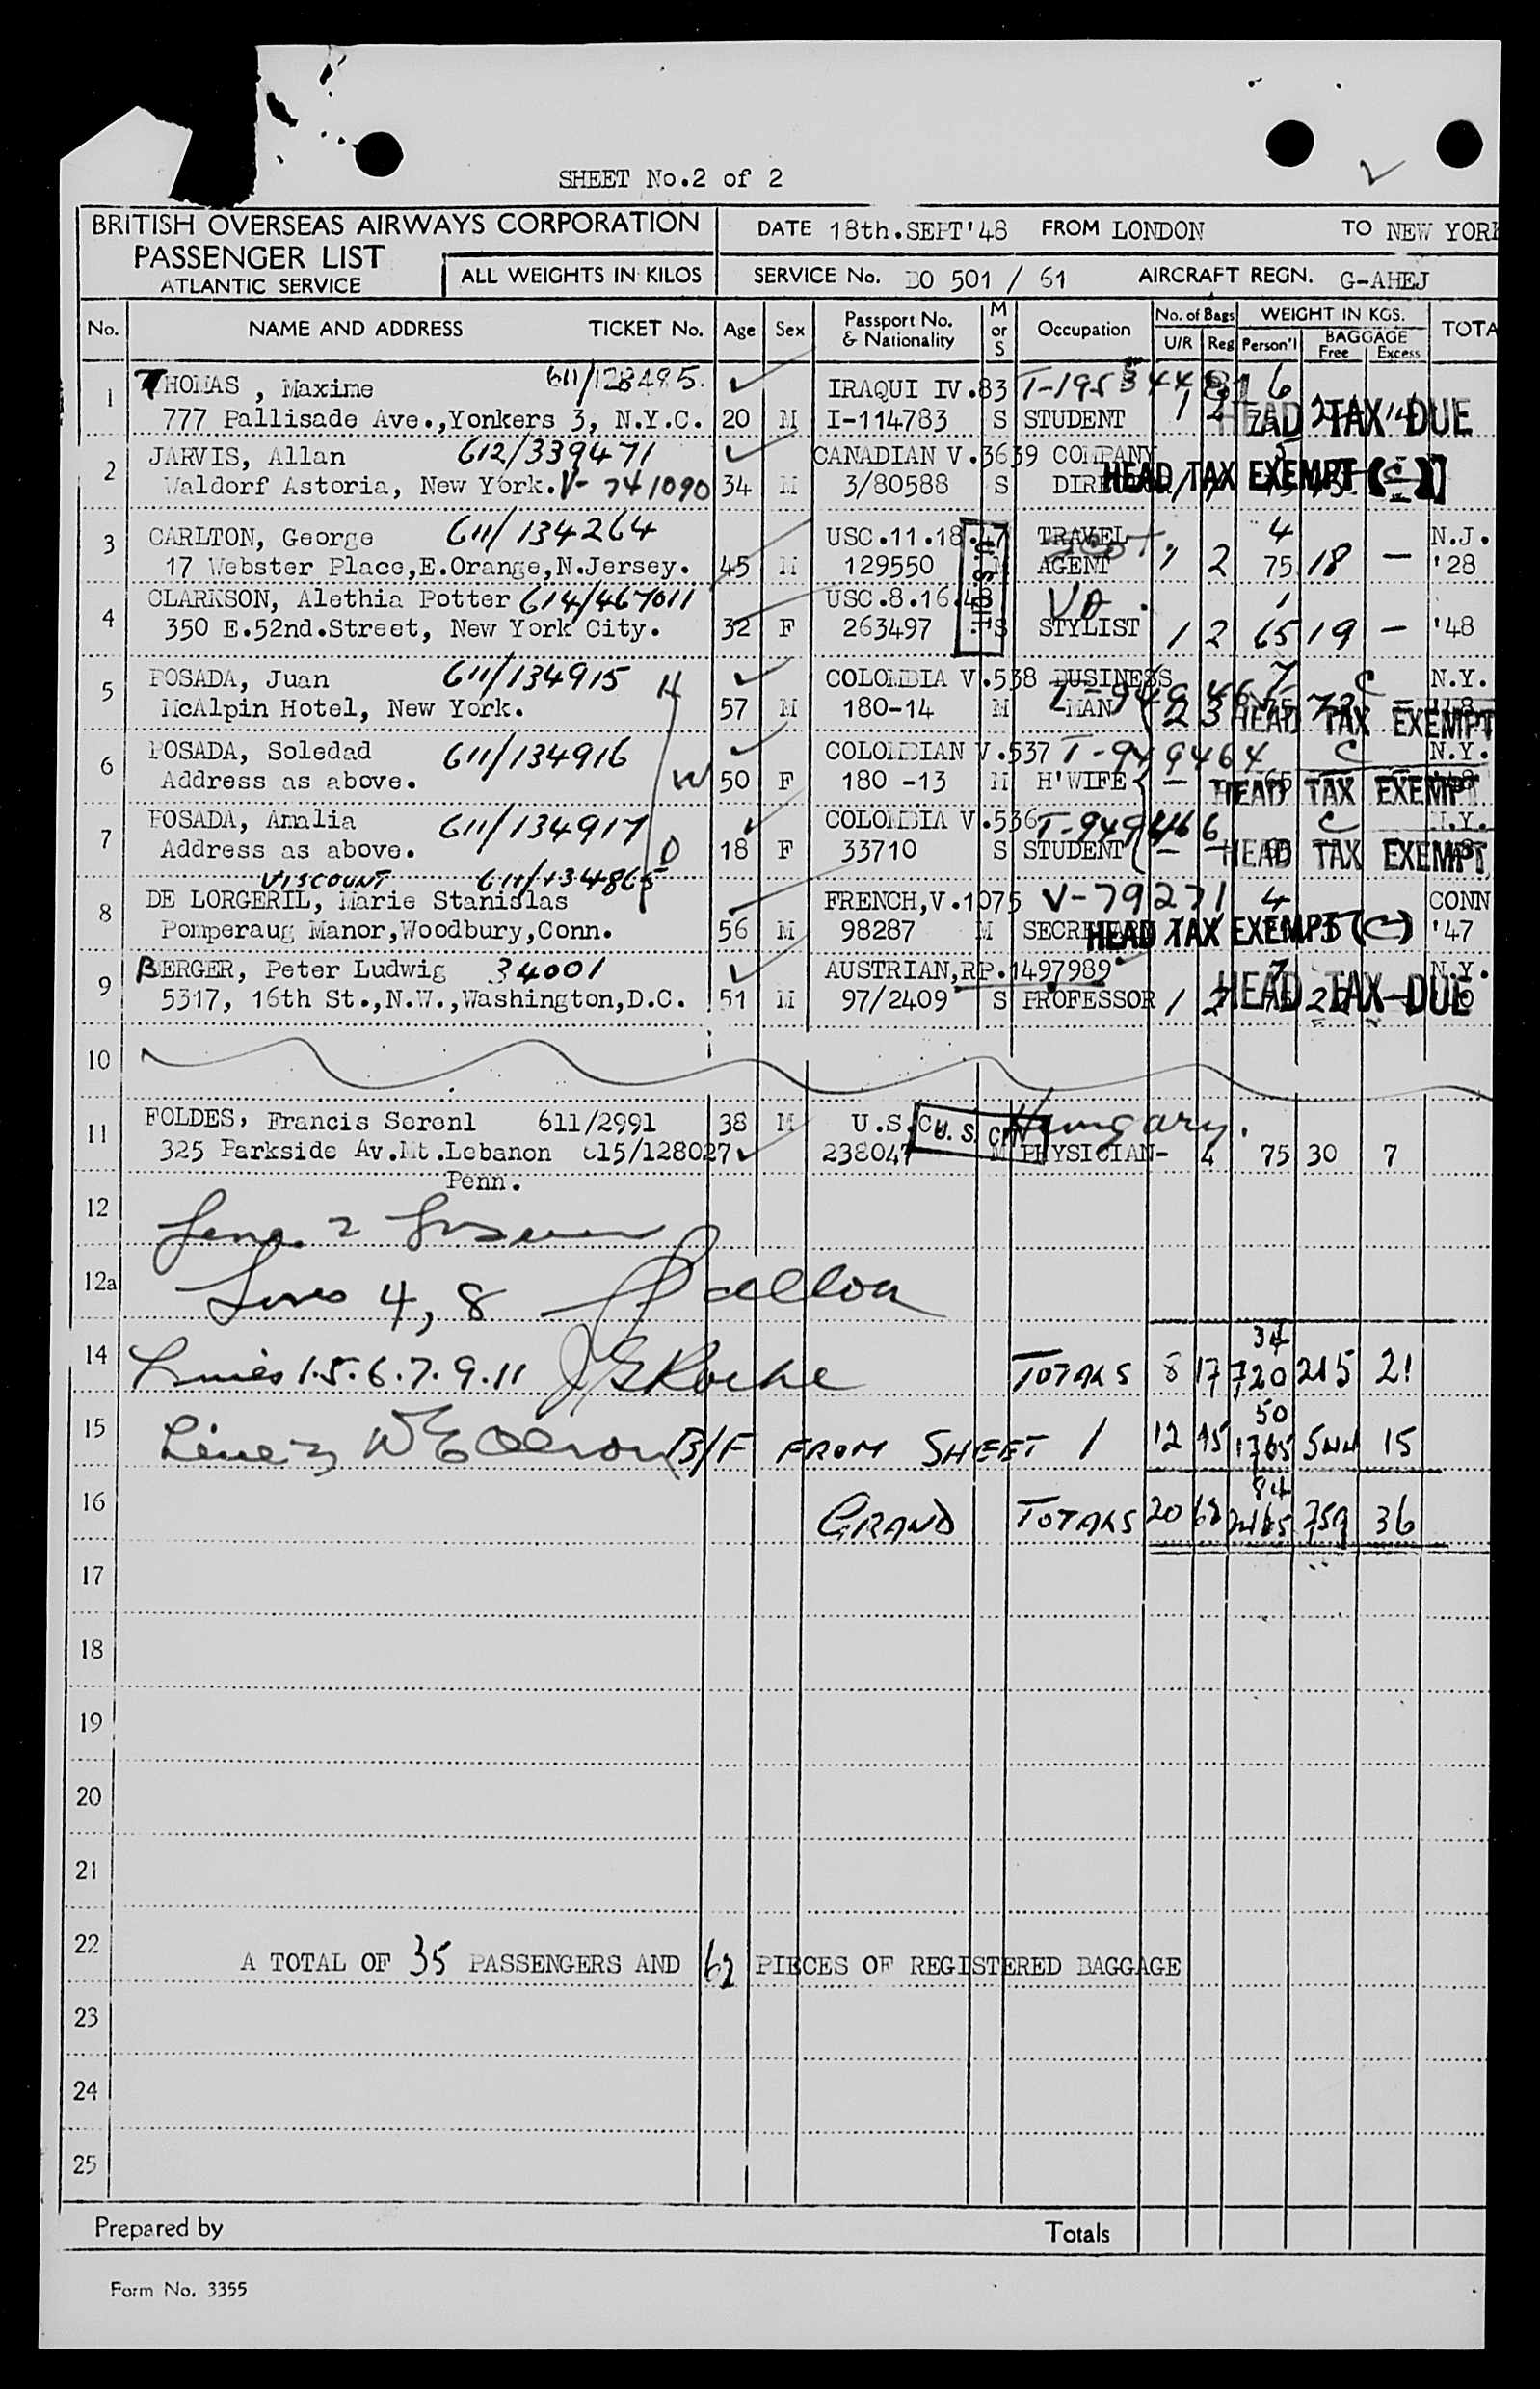 SHEET No.2 of 2
BRITISH OVERSEAS AIRWAYS CORPORATION
PASSENGER LIST
ATLANTIC SERVICE
ALL WEIGHTS IN KILOS
DATE 18th.SEPT'48 FROM LONDON TO NEW YORK
SERVICE No. BO 501 / 61 AIRCRAFT REGN. G-AHEJ
No. NAME AND ADDRESS TICKET No. Age Sex Passport No. & Nationality M or S Occupation No. of Bags U/R Reg WEIGHT IN KGS. Person'l BAGGAGE Free Excess TOTA
1 THOMAS , Maxime 611/128495. IRAQUI IV.83 6
777 Pallisade Ave.,Yonkers 3, N.Y.C. 20 M I-114783 S STUDENT 1 HEAD TAX DUE
2 JARVIS, Allan 612/339471 CANADIAN V.3639 COMPANY
Waldorf Astoria, New York. V-741090 34 M 3/80588 S HEAD TAX EXEMPT (C)
3 CARLTON, George 611/134264 USC.11.18.47 TRAVEL 4 N.J.
17 Webster Place,E.Orange,N.Jersey. 45 M 129550 M AGENT 1 2 75 18 — '28
U.S.CIT.
4 CLARKSON, Alethia Potter 614/467011 USC.8.16.48 1
350 E.52nd.Street, New York City. 32 F 263497 S STYLIST 1 2 65 19 — '48
5 POSADA, Juan 611/134915 H COLOMBIA V.538 BUSINESS 7 C N.Y.
McAlpin Hotel, New York. 57 M 180-14 M MAN 2 3 HEAD TAX EXEMPT
6 POSADA, Soledad 611/134916 COLOMBIAN V.537 T-949464 C N.Y.
Address as above. W 50 F 180 -13 M H'WIFE — HEAD TAX EXEMPT
7 POSADA, Amalia 611/134917 COLOMBIA V.536 T-949466 C N.Y.
Address as above. D 18 F 33710 S STUDENT — — HEAD TAX EXEMPT
VISCOUNT 611/134865
8 DE LORGERIL, Marie Stanislas FRENCH,V.1075 V-79271 4 CONN
Pomperaug Manor,Woodbury,Conn. 56 M 98287 M HEAD TAX EXEMPT (C) '47
9 BERGER, Peter Ludwig 34001 AUSTRIAN,RP.1497989 7 N.Y.
5317, 16th St.,N.W.,Washington,D.C. 51 M 97/2409 S PROFESSOR 1 2 HEAD TAX DUE
10
11 FOLDES, Francis Serenl 611/2991 38 M U.S.C. U.S. CIT Hungary.
325 Parkside Av.Mt.Lebanon 615/128027 238047 M PHYSICIAN - 4 75 30 7
Penn.
12
12a Lines 4, 8
34
14 Lines 1.5.6.7.9.11 JG Roche TOTALS 8 17 720 215 21
50
15 Line 3 B/F FROM SHEET 1 12 45 1365 544 15
84
16 GRAND TOTALS 20 62 759 36
17
18
19
20
21
22 A TOTAL OF 35 PASSENGERS AND 62 PIECES OF REGISTERED BAGGAGE
23
24
25
Prepared by Totals
Form No. 3355